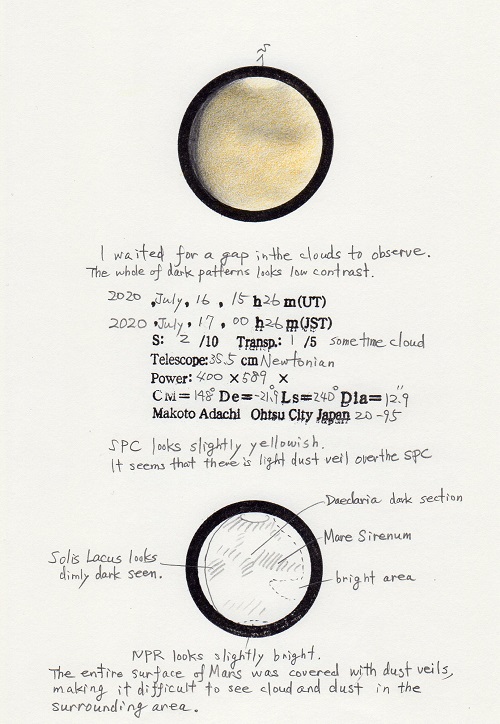 I waited for a gap in the clouds to observe.
The whole of dark patterns looks low contrast.
2020 , July , 16 , 15 h 26 m (UT)
2020 , July , 17 , 00 h 26 m (JST)
S: 2 /10 Transp.: 1 /5 sometime cloud
Telescope: 35.5 cm Newtonian
Power: 400 × 589 ×
CM= 148° De= -21.9° Ls= 240° Dia= 12.9"
Makoto Adachi Ohtsu City Japan 20-95
SPC looks slightly yellowish.
It seems that there is light dust veil over the SPC
Daedaria dark section
Mare Sirenum
Solis Lacus looks
dimly dark seen.
bright area
NPR looks slightly bright.
The entire surface of Mars was covered with dust veils,
making it difficult to see cloud and dust in the
surrounding area.